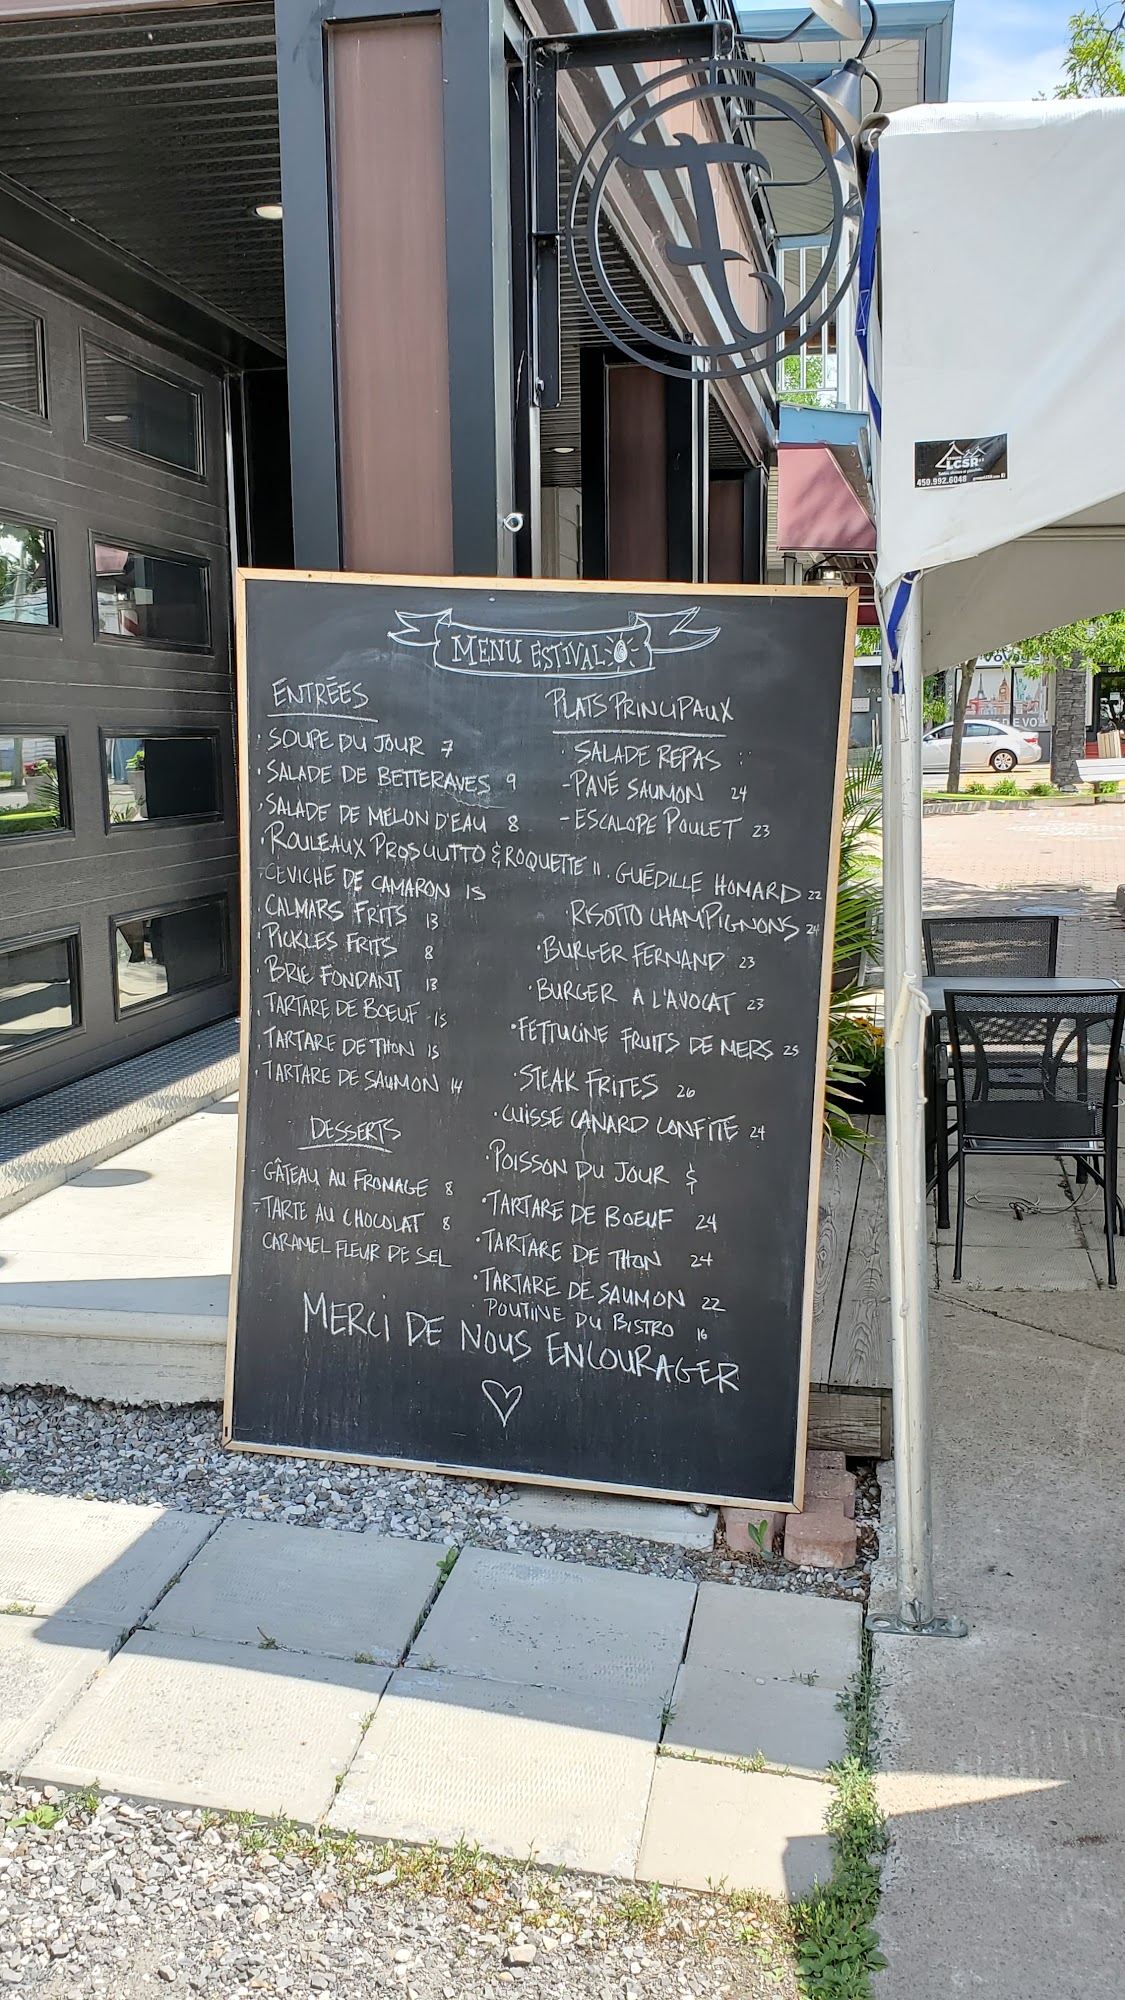 F
LCSR
450.992.6048
MENU ESTIVAL
ENTRÉES
· SOUPE DU JOUR 7
· SALADE DE BETTERAVES 9
· SALADE DE MELON D'EAU 8
· ROULEAUX PROSCIUTTO & ROQUETTE 11
· CEVICHE DE CAMARON 15
· CALMARS FRITS 13
· PICKLES FRITS 8
· BRIE FONDANT 13
· TARTARE DE BOEUF 15
· TARTARE DE THON 15
· TARTARE DE SAUMON 14
DESSERTS
- GÂTEAU AU FROMAGE 8
- TARTE AU CHOCOLAT 8
CARAMEL FLEUR DE SEL
PLATS PRINCIPAUX
· SALADE REPAS :
- PAVÉ SAUMON 24
- ESCALOPE POULET 23
· GUÉDILLE HOMARD 22
· RISOTTO CHAMPIGNONS 24
· BURGER FERNAND 23
· BURGER A L'AVOCAT 23
· FETTUCINE FRUITS DE MERS 25
· STEAK FRITES 26
· CUISSE CANARD CONFITE 24
· POISSON DU JOUR $
· TARTARE DE BOEUF 24
· TARTARE DE THON 24
· TARTARE DE SAUMON 22
· POUTINE DU BISTRO 16
MERCI DE NOUS ENCOURAGER